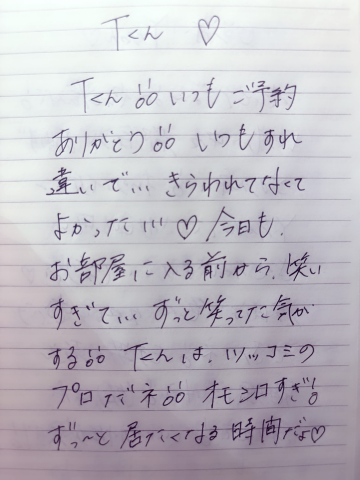 Tくん ♡
Tくん!! いつもご予約
ありがとう!! いつもすれ
違いで... きらわれてなくて
よかった!!! ♡ 今日も、
お部屋に入る前から、笑い
すぎて... ずっと笑ってた気が
する!! Tくんは、ツッコミの
プロだネ!! オモシロすぎ!
ずっ〜と居たくなる時間だよ♡